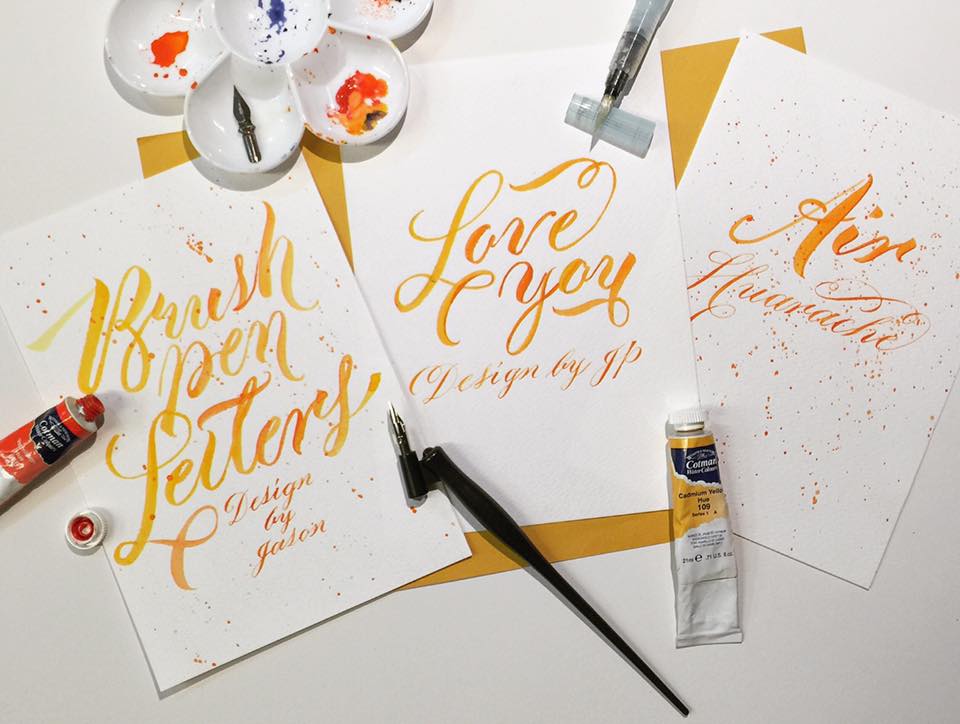 Brush
pen
Letters
Design
by
Jason
Love
you
Design by JP
Air
Huarache
Cotman
Cotman
Water Colour
Cadmium Yello
Hue
109
Series 1 A
21ml e .71 U.S. fl. oz.